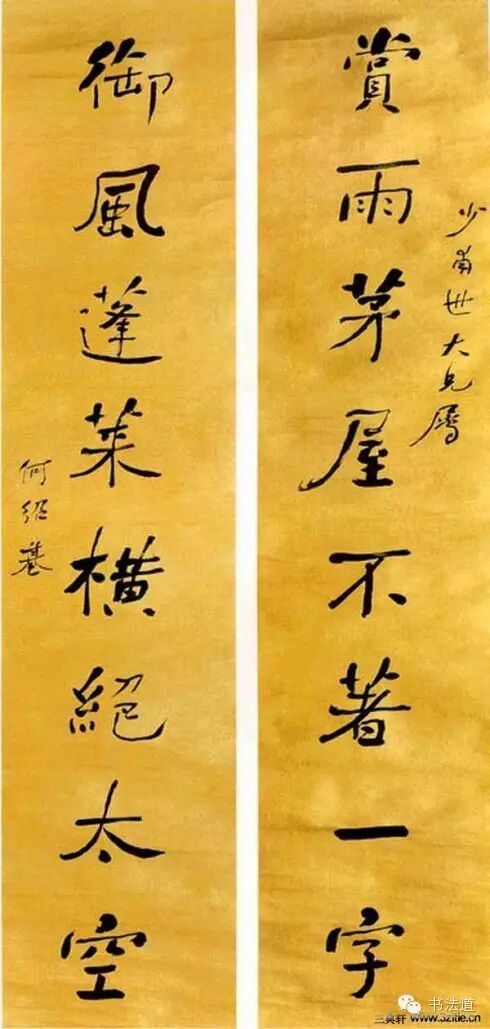 賞雨茅屋不著一字
少甫世大兄屬
御風蓬萊橫絕太空
何紹基
书法道
三莫轩 www.52itie.cn